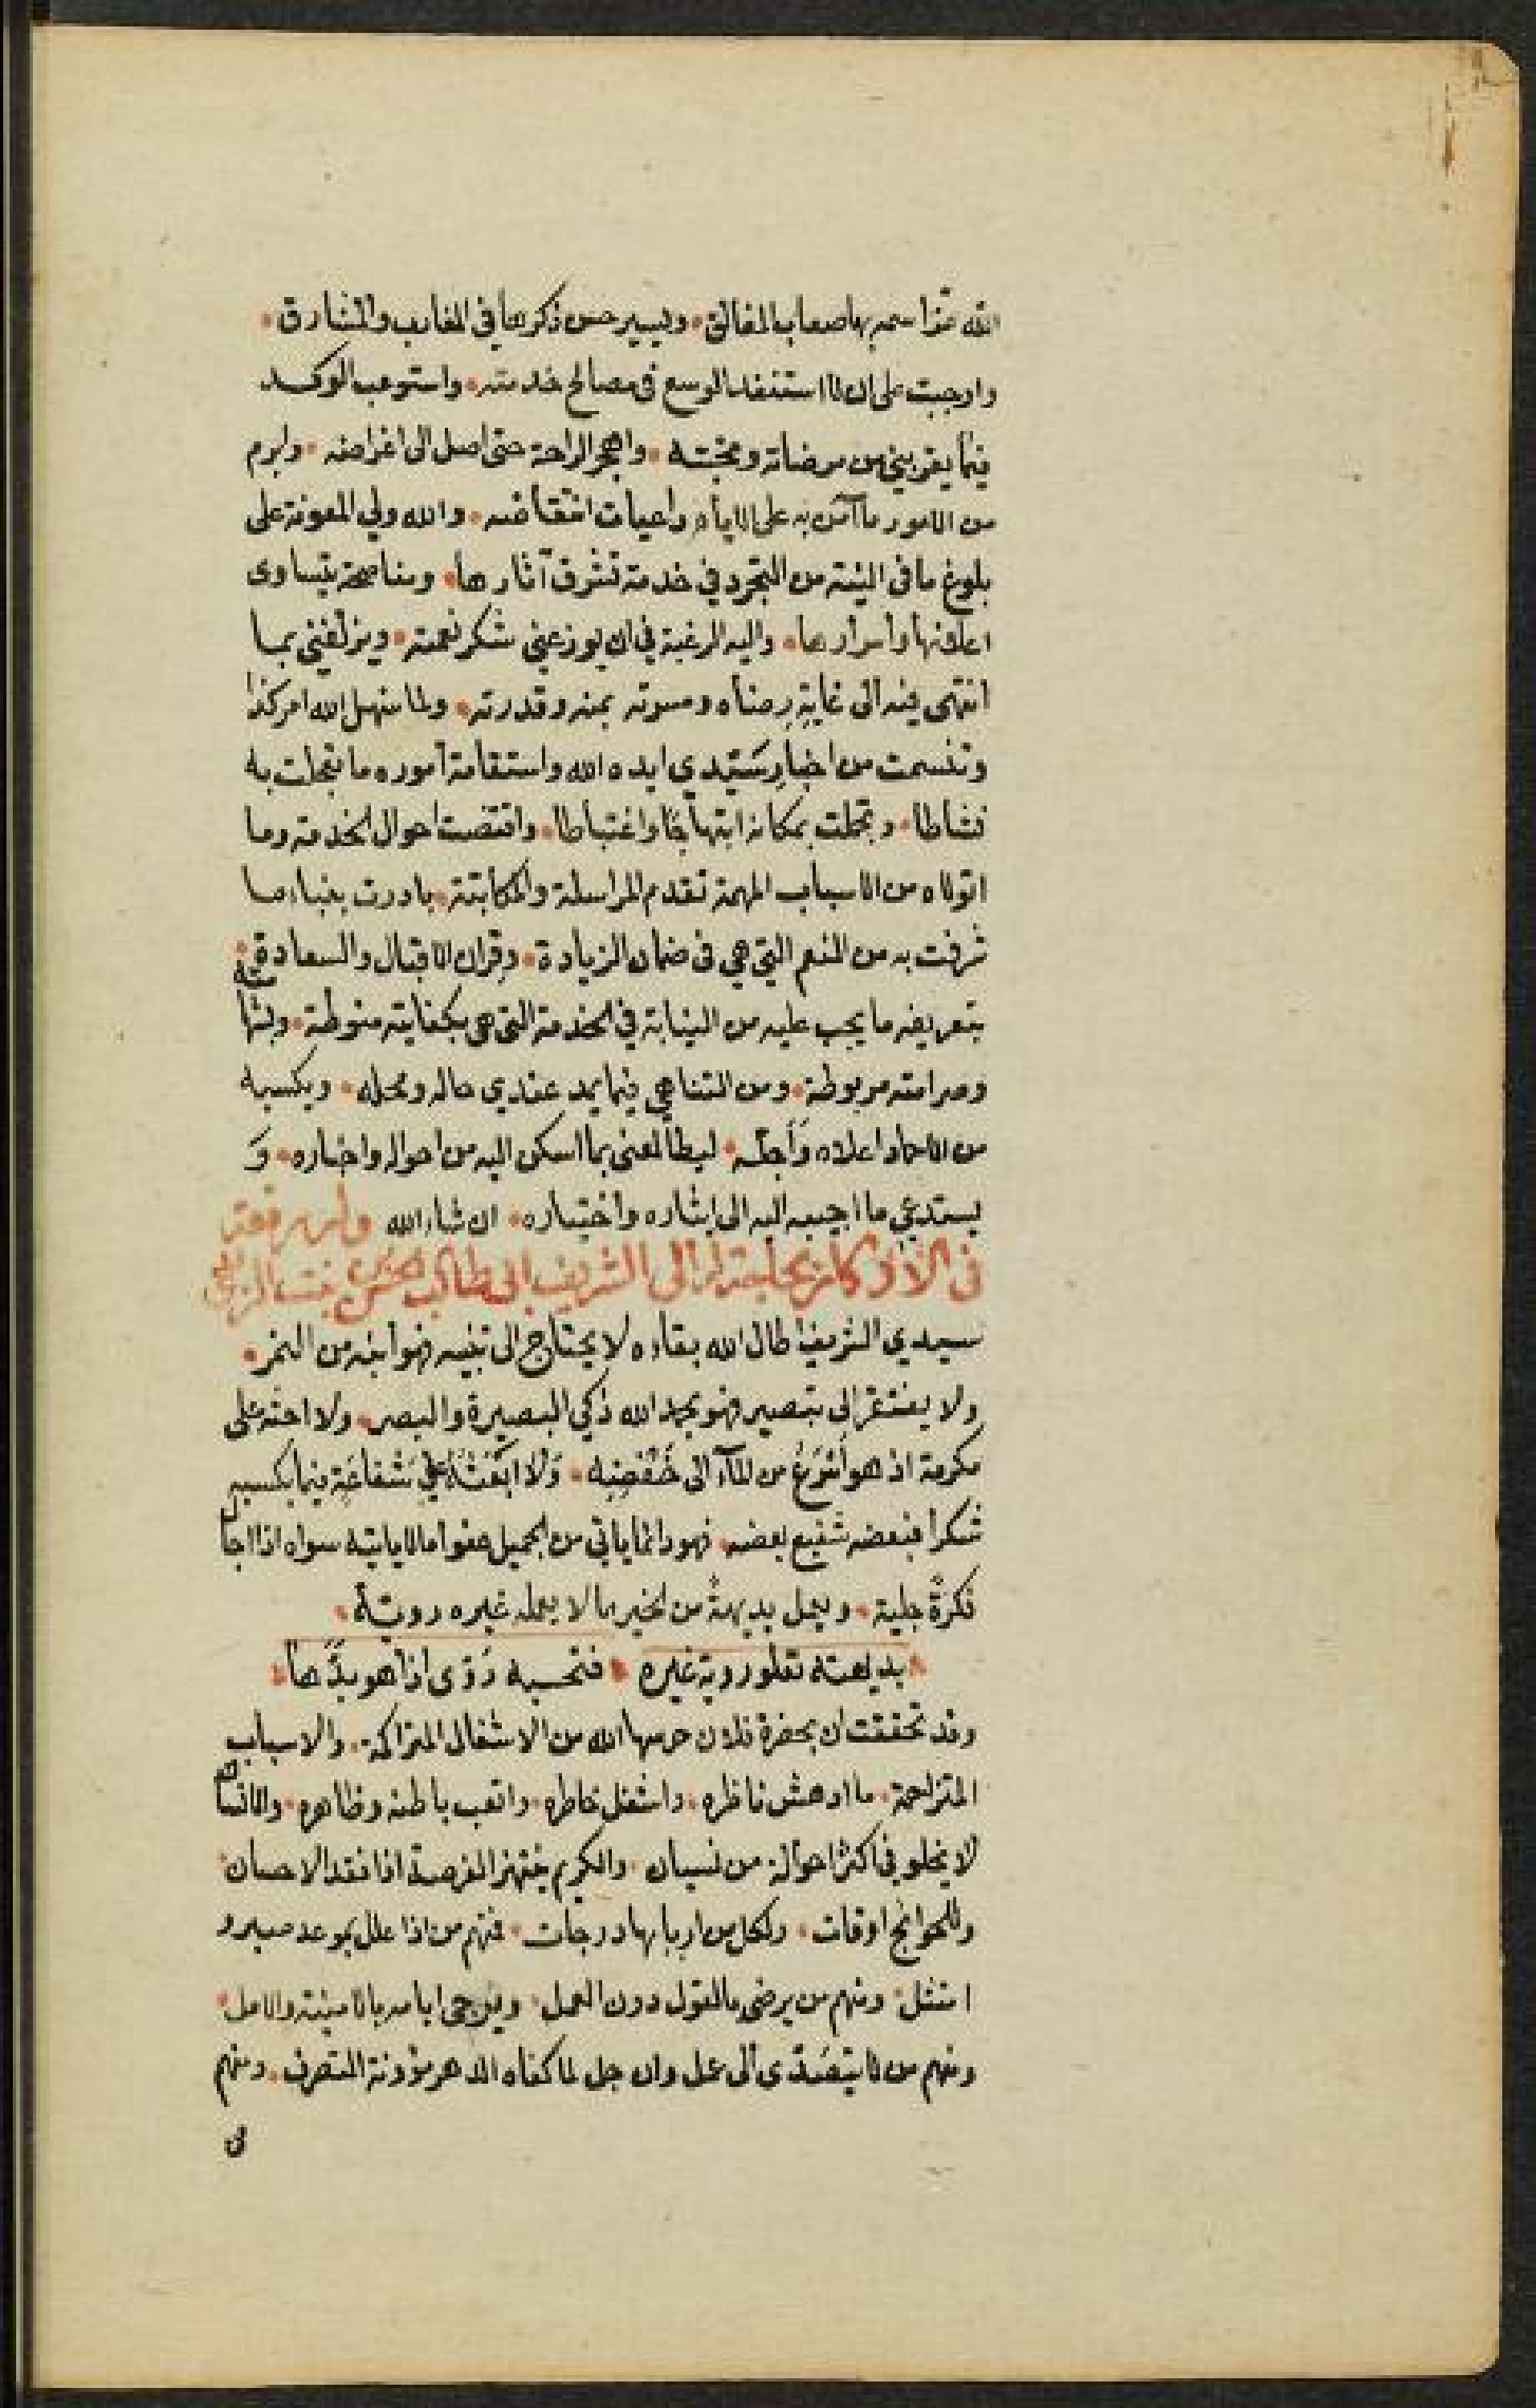 الله عز اسمه بها صعاب المغالق • ويسير حسن ذكرها في المغارب والمشارق •
واوجبت على ان لا استنفد الوسع في مصالح خدمته • واستوعب الوكد
فيما يقربني من مرضاته ومحبته • واهجر الراحة حتى اصل الى اغراضه • وابرم
من الامور ما آمن به على الايام داعيات انتقاضه • والله ولي المعونة على
بلوغ ما في النية من التجرد في خدمة تشرق آثارها • ومناصحة يتساوى
اعلانها وأسرارها • واليه الرغبة في ان يوزعني شكر نعمته • ويزلفني بما
انتهى فيه الى غاية رضاه ومسرته بمنه وقدرته • ولما سهل الله امر كذا
وتنسمت من اخبار سيدي ايده الله واستقامة أموره ما تجملت به
نشاطا • وتحملت بمكانه ابتهاجا واغتباطا • واقتضت احوال الخدمة وما
اتولاه من الاسباب المهمة تقدم المراسلة والمكاتبة • بادرت بانباء ما
شرفت به من النعم التي هي في ضمان الزيادة • وقران الاقبال والسعادة •
بتعريفه ما يجب عليه من النيابة في الخدمة التي هي بكفايته منوطة • وبشهامته
وصرامته مربوطة • ومن التناهي فيما يمد عندي حاله ومحله • ويكسبه
من الاحماد اعلاه وأجله • ليطالعني بما اسكن اليه من احواله واخباره • و
يستدعي ما اجيبه اليه الى ايثاره واختياره • ان شاء الله وله رقعة
في الاذكار بحاجة له الى الشريف ابي طالب الحسن بن
سيدي الشريف اطال الله بقاءه لا يحتاج الى تنبيه فهو أنبه من النمر •
ولا يفتقر الى تبصير فهو بحمد الله ذكي البصيرة والبصر • ولا احثه على
مكرمة اذ هو أسرع من الماء الى خفضه • ولا ابعثه على شفاعة فيما يكسبه
شكرا فبعضه شفيع بعضه • فهو انما يأتي من الجميل عفوا ما لا يأتيه سواه اذا اجا
فكرة جلية • ويعمل بديهة من الخير ما لا يعمله غيره روية •
• بديهته تعلو روية غيره • فتحسبه روى اذا هو بدها •
وقد تحققت ان بحضرة فلان حرسها الله من الاشغال المتراكمة • والاسباب
المتزاحمة • ما ادهش ناظره • واشغل خاطره • واتعب باطنه وظاهره • والانسان
لا يخلو في اكثر احواله من نسيان • والكريم ينتهز الفرصة اذا فقد الاحسان •
وللحوائج اوقات • ولكل من اربابها درجات • فمنهم من اذا علل بموعد صبر و
امتثل • ومنهم من يرضى بالقول دون العمل • ويزجي ايامه بالامنية والامل •
ومنهم من لا يتصدى الى عمل وان جل لما كفاه الدهر مؤونة التصرف • ومنهم